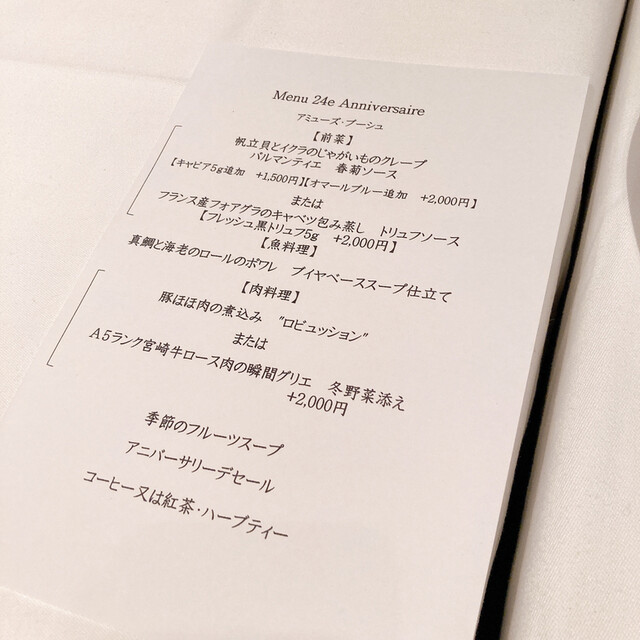 Menu 24e Anniversaire
アミューズ・ブーシュ
【前菜】
帆立貝とイクラのじゃがいものクレープ
パルマンティエ　春菊ソース
【キャビア5g追加　+1,500円】【オマールブルー追加　+2,000円】
または
フランス産フオアグラのキャベツ包み蒸し　トリュフソース
【フレッシュ黒トリュフ5g　+2,000円】
【魚料理】
真鯛と海老のロールのポワレ　ブイヤベーススープ仕立て
【肉料理】
豚ほほ肉の煮込み　"ロビュッション"
または
A5ランク宮崎牛ロース肉の瞬間グリエ　冬野菜添え
+2,000円
季節のフルーツスープ
アニバーサリーデセール
コーヒー又は紅茶・ハーブティー